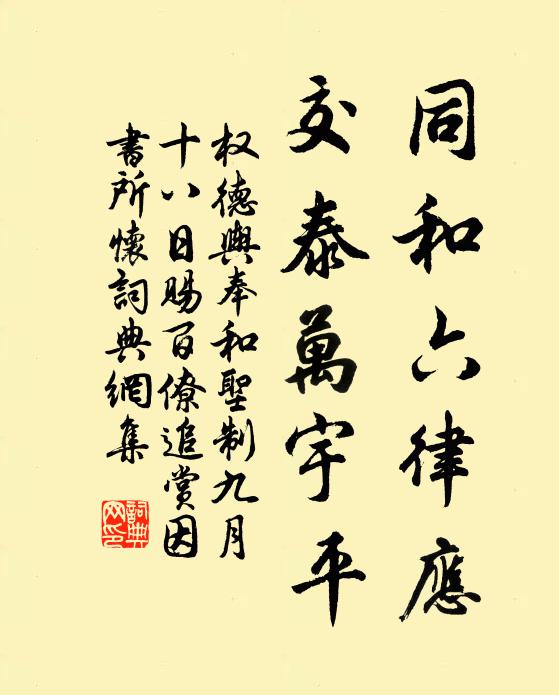 同和六律應
交泰萬宇平
权德輿奉和聖制九月
十八日賜百僚追賞因
書所懷詞典網集
詞典網印